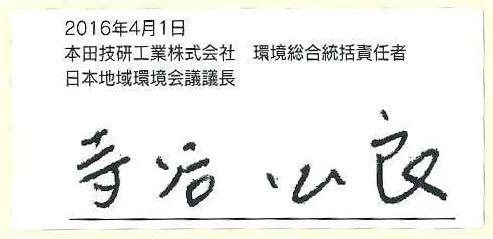 2016年4月1日
本田技研工業株式会社　環境総合統括責任者
日本地域環境会議議長
寺谷公良